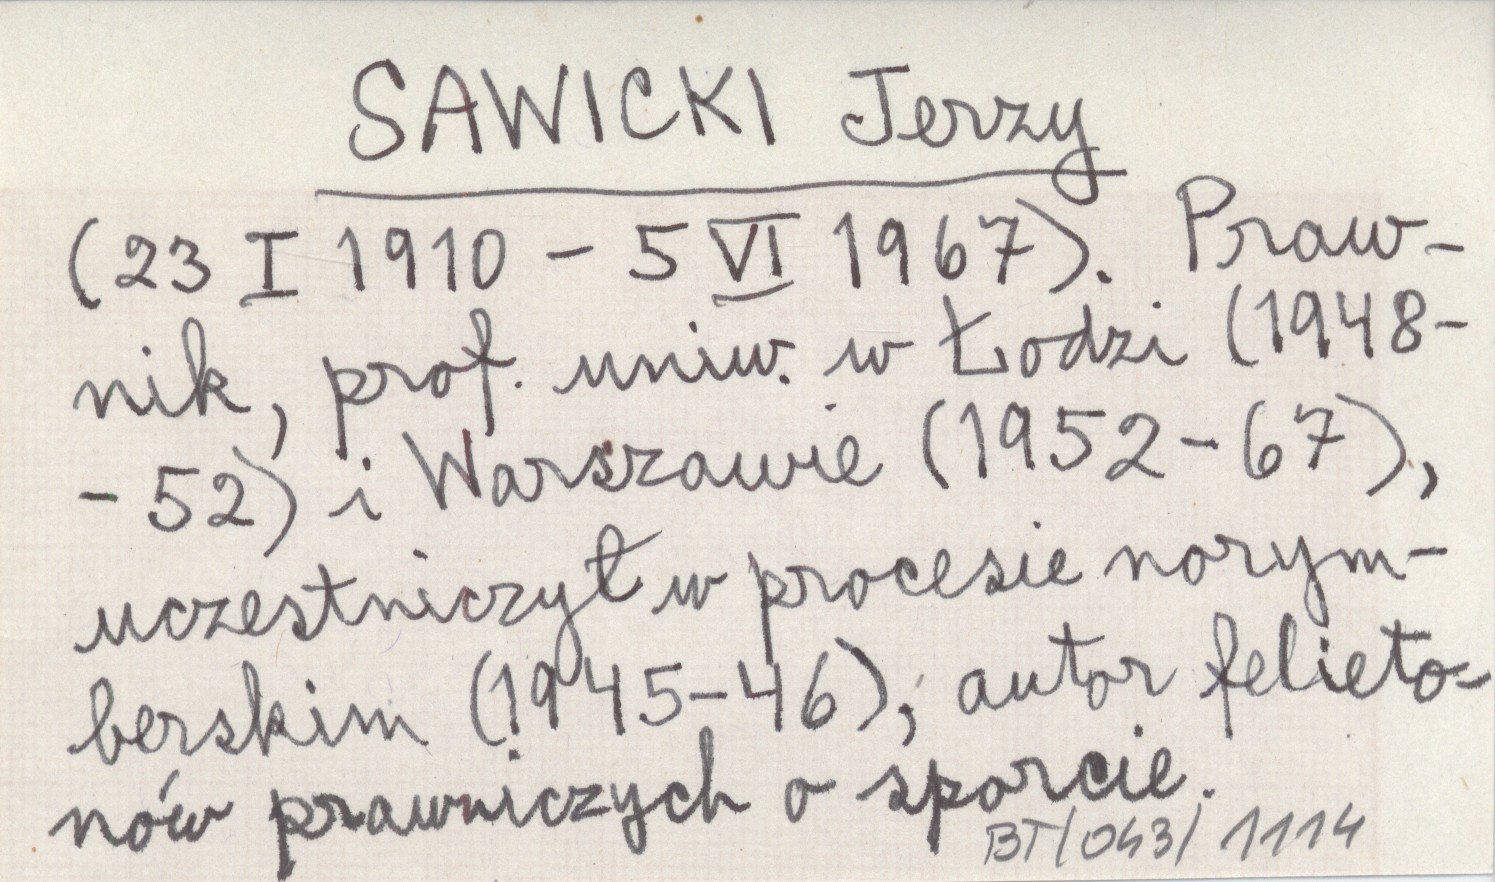 SAWICKI Jerzy
(23 I 1910 – 5 VI 1967). Praw-
nik, prof. uniw. w Łodzi (1948-
- 52) i Warszawie (1952-67),
uczestniczył w procesie norym-
berskim (1945-46), autor felieto-
nów prawniczych o sporcie.
BT/043/1114